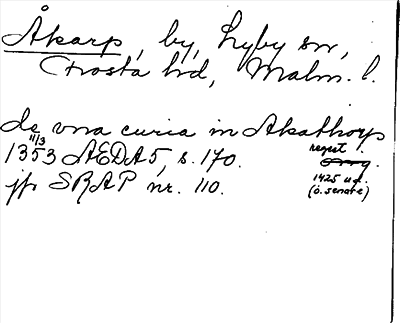 Åkarp, by, Lyby sn,
Frosta hd, Malm. l.
de vna curia in Akathorp
11/3
1353 ÆDA5, s. 170. regest.
jfr SRAP nr. 110. 1425 u.d.
(o. senare)